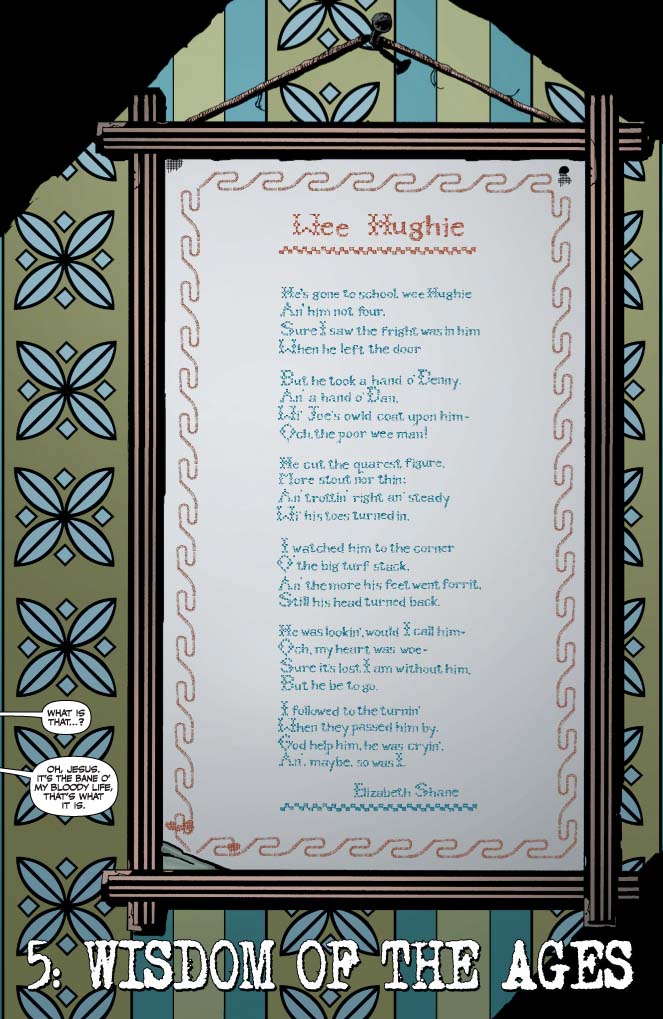 Wee Hughie
He's gone to school, wee Hughie
An' him not four,
Sure I saw the fright was in him
When he left the door
But he took a hand o' Denny,
An' a hand o' Dan,
Wi' Joe's owld coat upon him-
Och, the poor wee man!
He cut the quarest figure,
More stout nor thin;
An' trottin' right an' steady
Wi' his toes turned in.
I watched him to the corner
O' the big turf stack,
An' the more his feet went forrit,
Still his head turned back.
He was lookin', would I call him-
Och, my heart was woe-
Sure it's lost I am without him,
But he be to go.
I followed to the turnin'
When they passed him by.
God help him, he was cryin',
An', maybe, so was I.
Elizabeth Shane
WHAT IS
THAT...?
OH, JESUS.
IT'S THE BANE O'
MY BLOODY LIFE,
THAT'S WHAT
IT IS.
5: WISDOM OF THE AGES